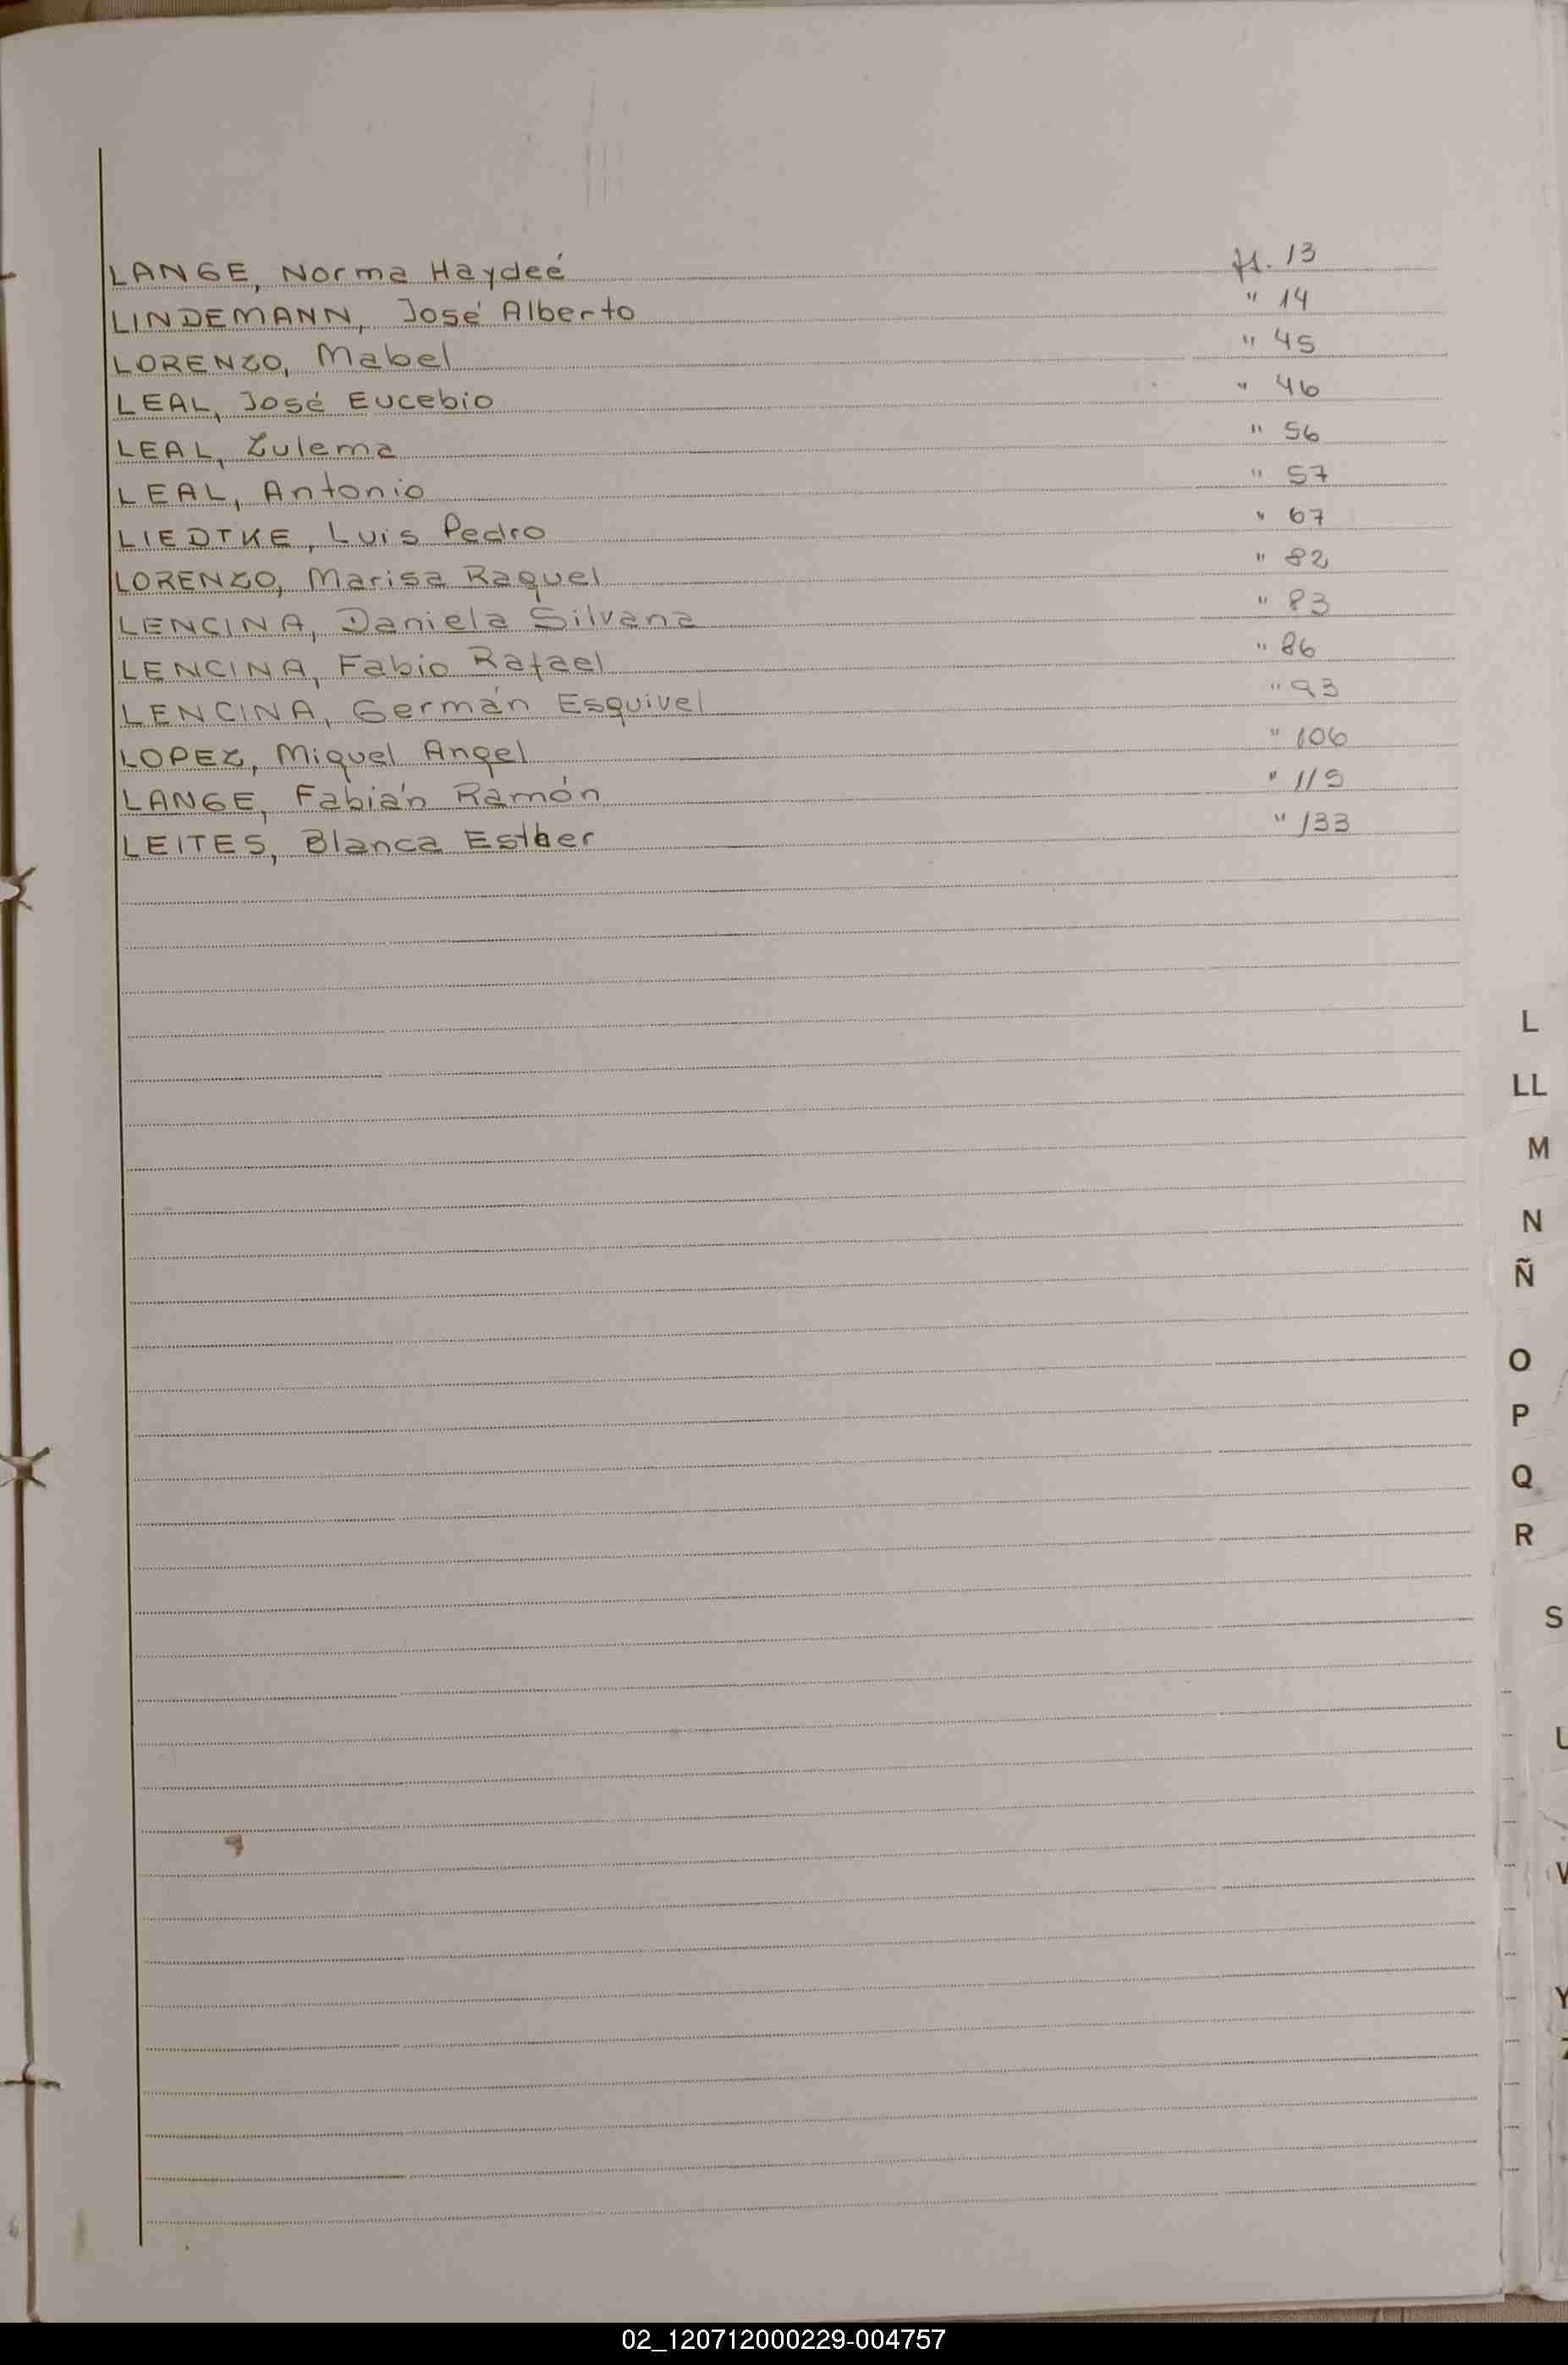 LANGE, Norma Haydeé fs. 13
LINDEMANN, José Alberto " 14
LORENZO, Mabel " 45
LEAL, José Eucebio " 46
LEAL, Zulema " 56
LEAL, Antonio " 57
LIEDTKE, Luis Pedro " 67
LORENZO, Marisa Raquel " 82
LENCINA, Daniela Silvana " 83
LENCINA, Fabio Rafael " 86
LENCINA, Germán Esquivel " 93
LOPEZ, Miguel Angel " 106
LANGE, Fabián Ramón " 115
LEITES, Blanca Esther " 133
L
LL
M
N
Ñ
O
P
Q
R
S
U
V
Y
Z
02_120712000229-004757